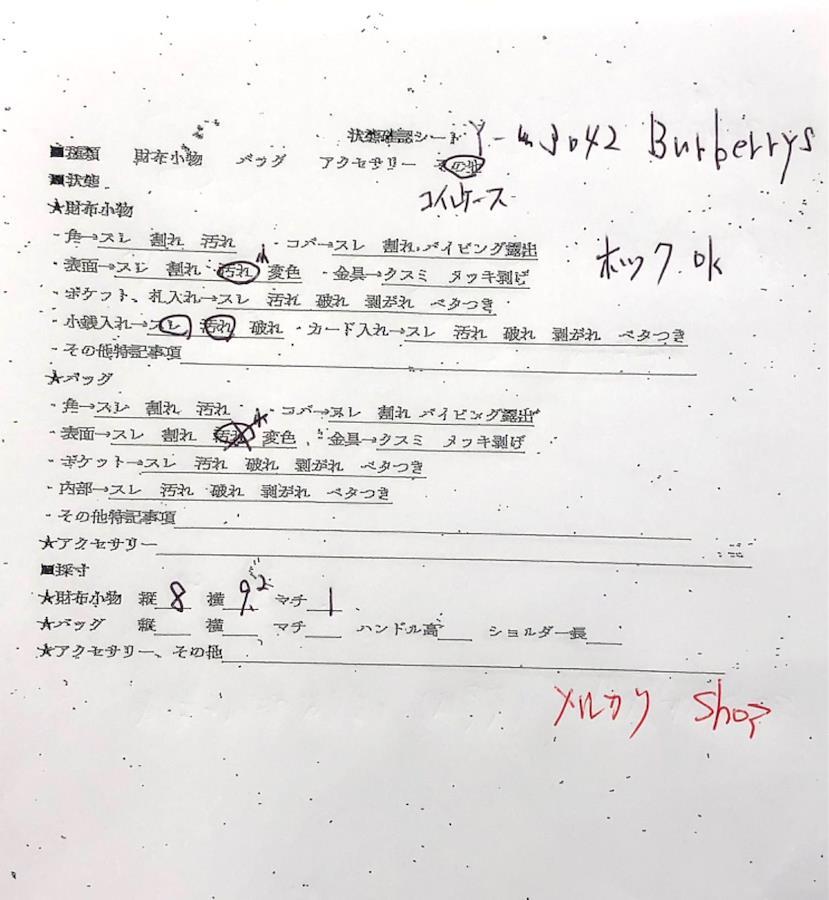 状態確認シート Y-m3042 Burberrys
■種類 財布小物 バッグ アクセサリー その他
■状態 コインケース
★財布小物
・角→スレ 割れ 汚れ ・コバ→スレ 割れ パイピング露出
・表面→スレ 割れ 汚れ 小 変色 ・金具→クスミ メッキ剥げ ホック ok
・ポケット、札入れ→スレ 汚れ 破れ 剥がれ ベタつき
・小銭入れ→スレ 汚れ 破れ ・カード入れ→スレ 汚れ 破れ 剥がれ ベタつき
・その他特記事項
★バッグ
・角→スレ 割れ 汚れ ・コバ→スレ 割れ パイピング露出
・表面→スレ 割れ 汚れ 変色 ・金具→クスミ メッキ剥げ
・ポケット→スレ 汚れ 破れ 剥がれ ベタつき
・内部→スレ 汚れ 破れ 剥がれ ベタつき
・その他特記事項
★アクセサリー
■採寸
★財布小物 縦 8 横 9.2 マチ 1
★バッグ 縦 横 マチ ハンドル高 ショルダー長
★アクセサリー、その他
メルカリ Shop